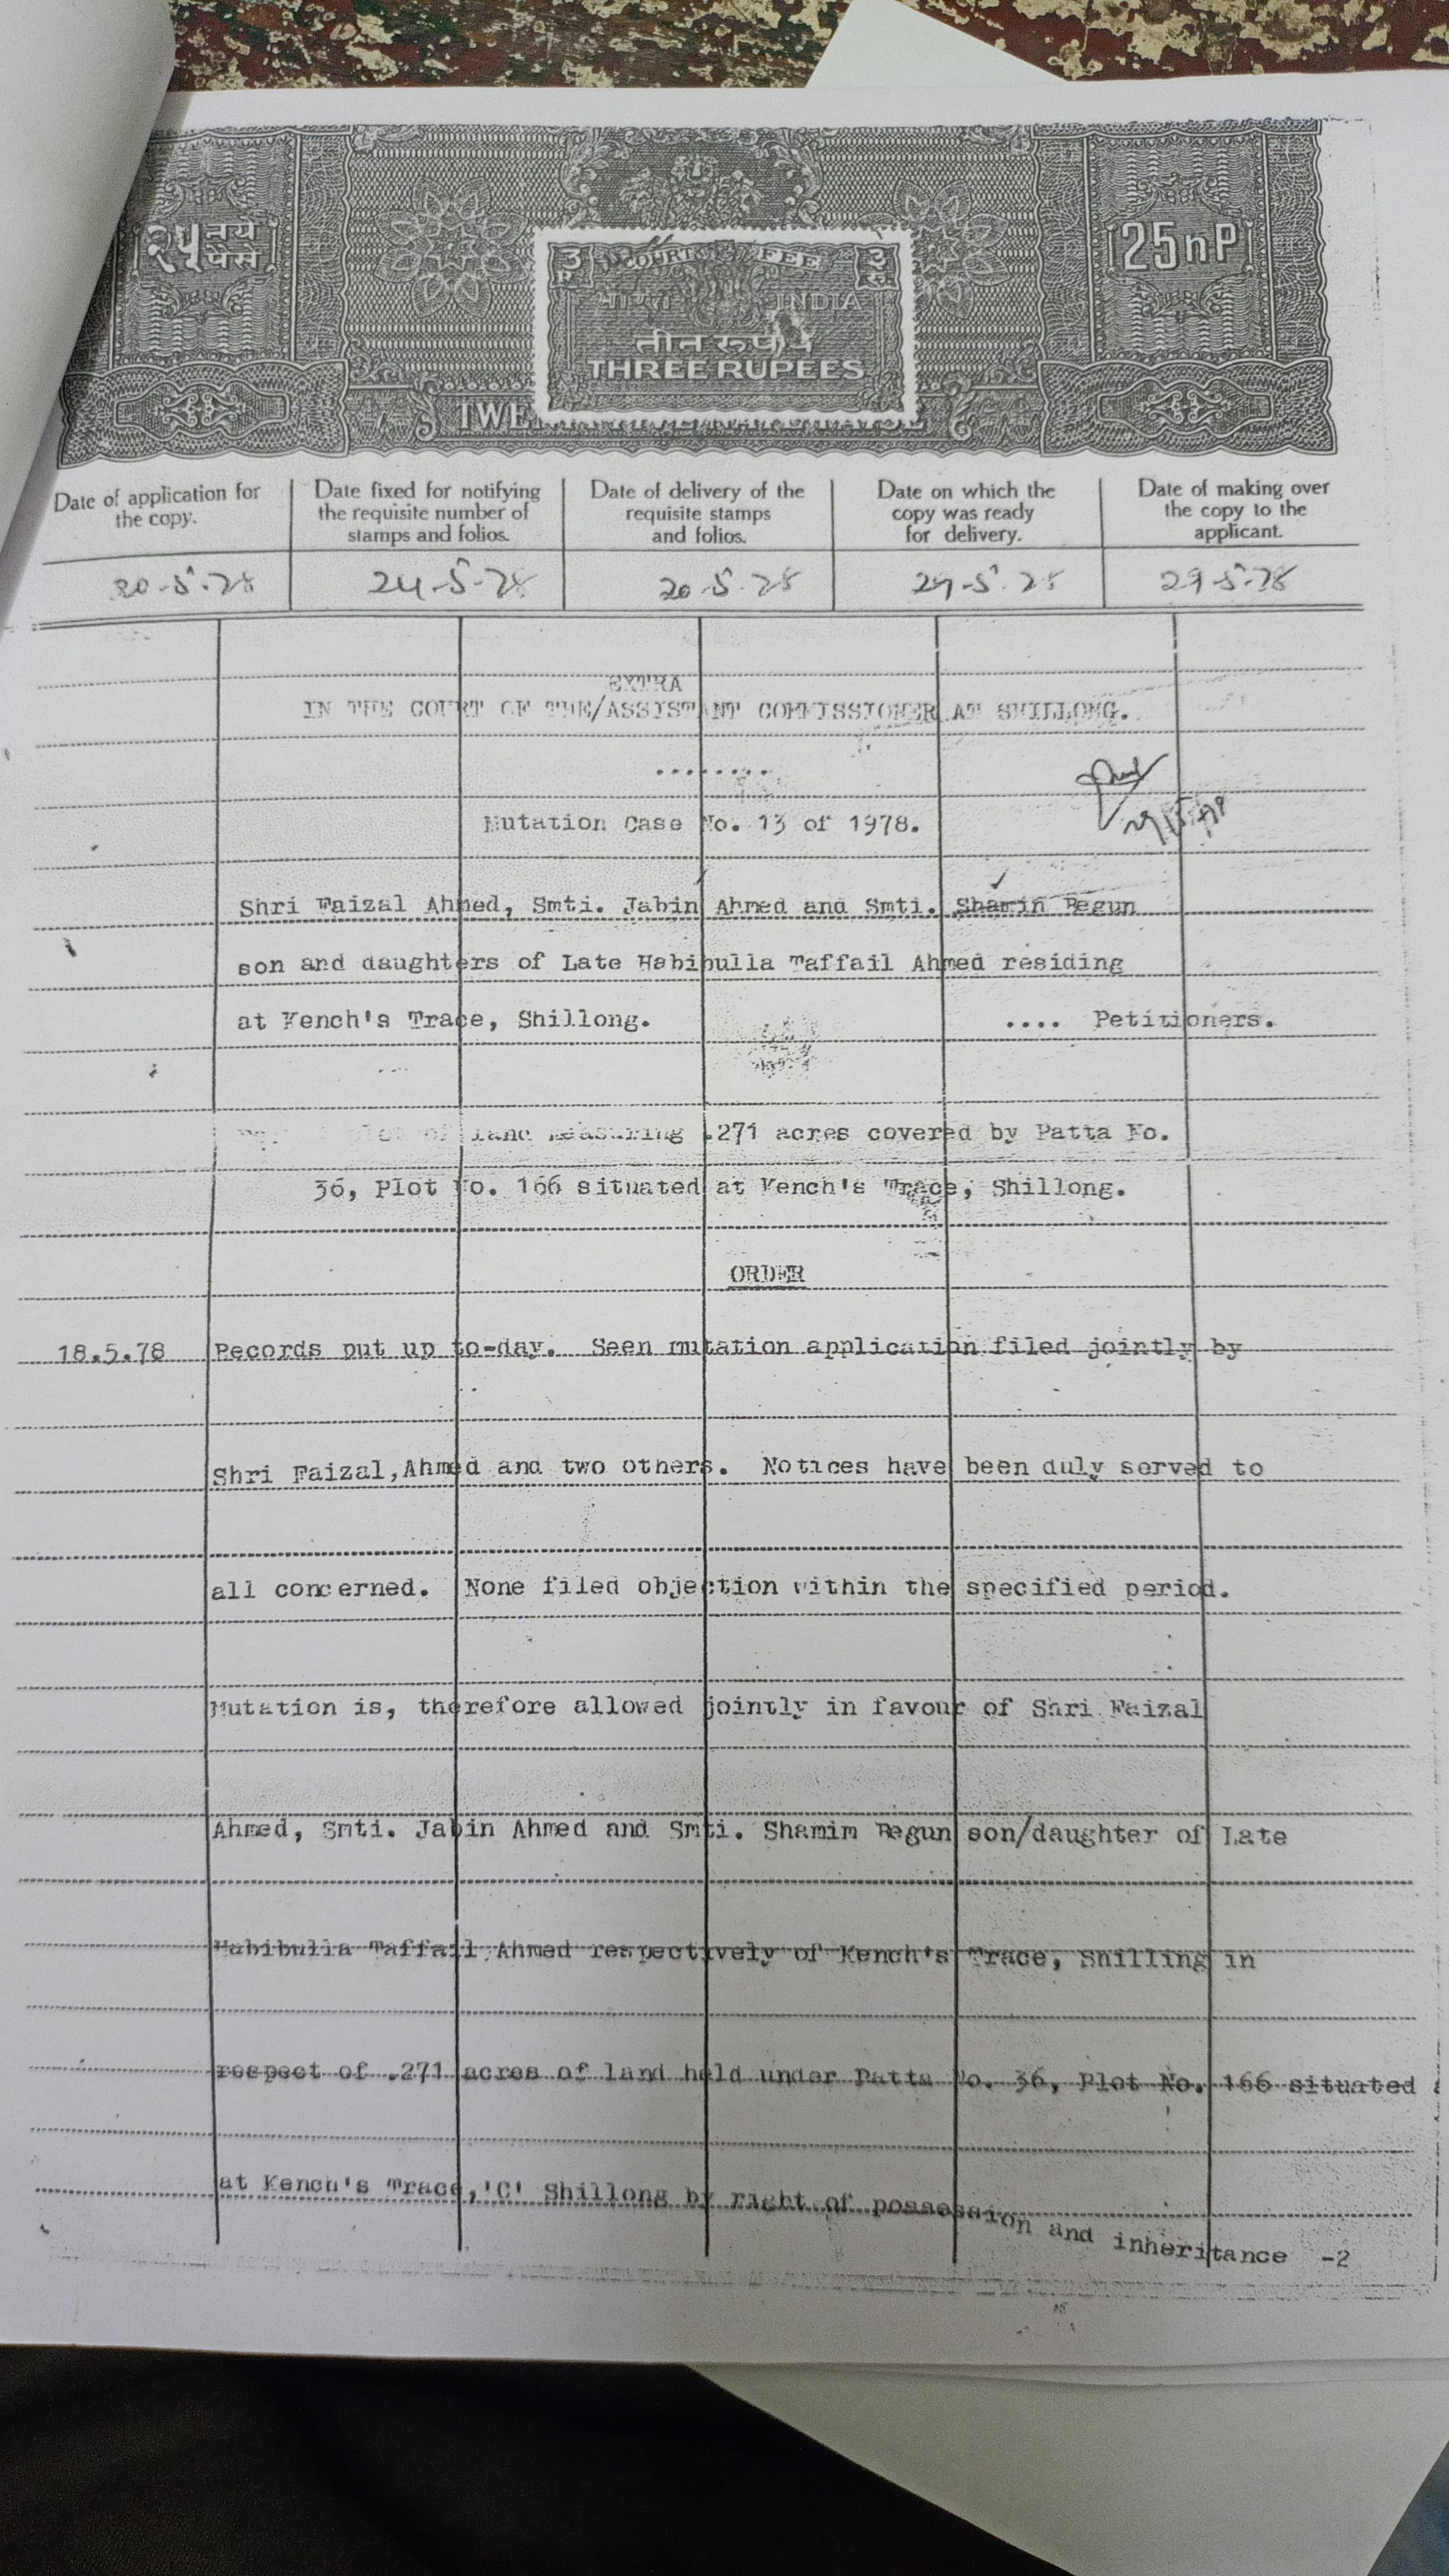 २५ नये पैसे
25nP
3 COURT FEE ३
भारत INDIA
तीन रूपये
THREE RUPEES
TWE
Date of application for the copy.
Date fixed for notifying the requisite number of stamps and folios.
Date of delivery of the requisite stamps and folios.
Date on which the copy was ready for delivery.
Date of making over the copy to the applicant.
20-5-78 24-5-78 20-5-78 29-5-78 29-5-78
EXTRA
IN THE COURT OF THE/ASSISTANT COMMISSIONER AT SHILLONG.
........
29/5/78
Mutation Case No. 13 of 1978.
Shri Faizal Ahmed, Smti. Jabin Ahmed and Smti. Shamin Begun
son and daughters of Late Habibulla Taffail Ahmed residing
at Kench's Trace, Shillong. .... Petitioners.
of land measuring .271 acres covered by Patta No.
36, Plot No. 166 situated at Kench's Trace, Shillong.
ORDER
18.5.78 Records put up to-day. Seen mutation application filed jointly by
Shri Faizal,Ahmed and two others. Notices have been duly served to
all concerned. None filed objection within the specified period.
Mutation is, therefore allowed jointly in favour of Shri Faizal
Ahmed, Smti. Jabin Ahmed and Smti. Shamim Begun son/daughter of Late
Habibulla Taffail Ahmed respectively of Kench's Trace, Shilling in
respect of .271 acres of land held under Patta No. 36, Plot No. 166 situated
at Kench's Trace,'C' Shillong by right of possession and inheritance -2